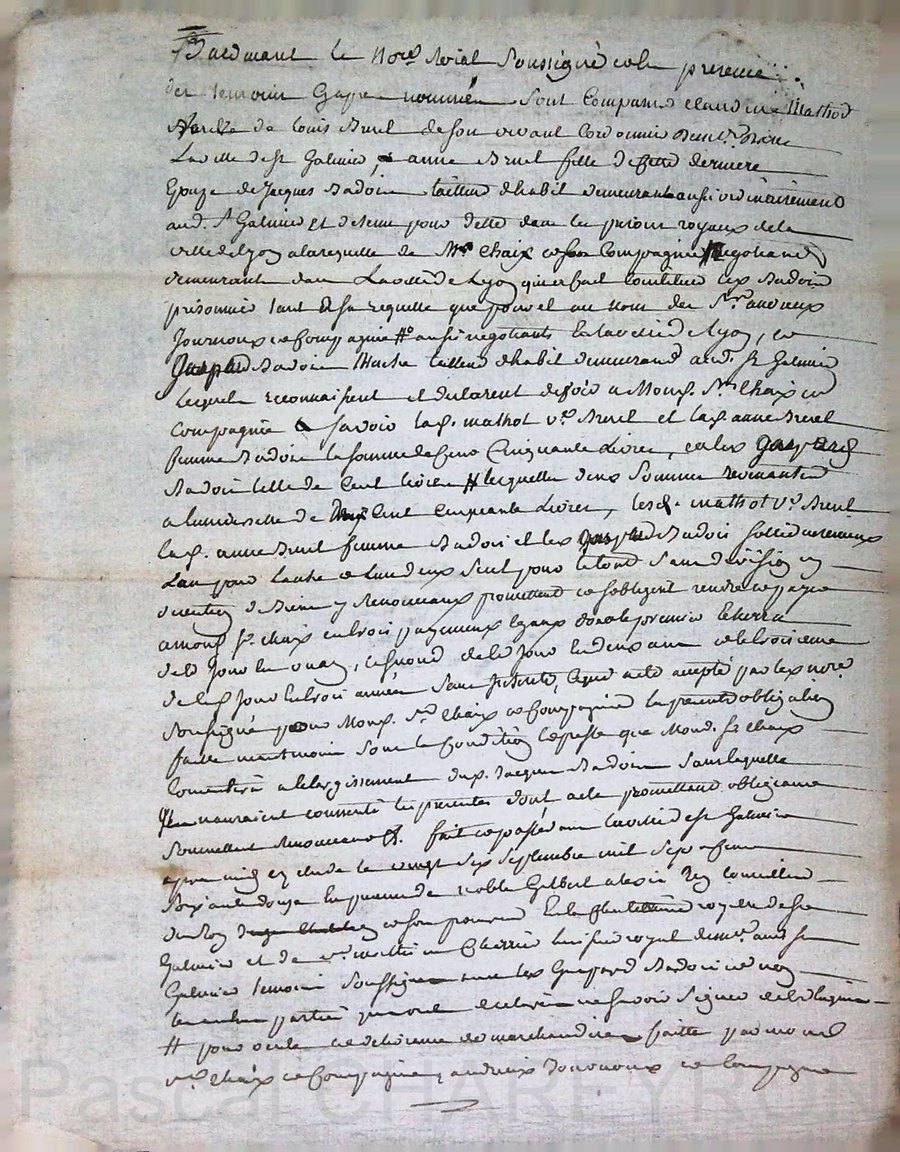 Pardevant le no.re Roial soussigné et en presence
des temoins cy apres nommés sont comparus claudine Mathod
veufve de louis Bruel de son vivant Cordonnier demt. dans
La ville de st Galmier, & anne Bruel fille de cette derniere
Epouze de Jacques Badoin tailleur dhabit demeurante aussi ordinairement
aud. St Galmier et detenu pour dette dans les prisons royaux de la
ville de lyon a la requette de Mrs Chaix et Compagnie Negotiand
demeurant dans La ville de Lyon qui ont fait constituer led. Badoin
prisonnier tant a sa requette que pour et au nom des Srs andrieux
Journoux et Compagnie # aussi negotiants en la ville de Lyon, et
Gaspard Badoin Maitre tailleur dhabit demeurand aud. St Galmier
Lesquels reconnaissent et declarent devoir a Mons. Sr Chaix et
Compagnie savoir lad. mathot ve Bruel et lad. anne Bruel
femme Badoin la somme de Cinquante Livres, et led. Gaspard
Badoin celle de Cent livres # lesquelles deux sommes revenantes
a l'universelle de Cent Cinquante Livres, lesd. mathot ve Bruel
lad. anne Bruel femme Badoin et led. Gaspard Badoin sollidairement
L'un pour l'autre et l'un deux seul pour le tout sans division ny
discution de Biens y Renonceants promettent et s'obligent rendre et payer
a mond. Sr. chaix en trois payements Egaux dont le premier Echerra
de ce Jour en un an, le second de ce Jour en deux ans et le troisieme
de ce Jour en trois années sans Interets, Ce qui a ete accepté par led. nore.
soussigné pour Mond. Sr Chaix et Compagnie la presente obligation
faitte neantmoins sous la Condition Expresse que Mond. Sr Chaix
Consentira a l'elargissement dud. Jacques Badoin sans laquelle
Ils nauraient consenti les presentes dont acte promettant obligeant
soumettant Renonceant &. fait et passé en la ville de St Galmier
apres midy en etude le vingt six septembre mil sept cent
soixante douze En presence de noble Gilbert alexis Rey Conseiller
du Roy et son procureur En la Chatellenie royalle de St
Galmier et de Cherrin huissier royal demt. aud. St
Galmier temoins soussignes avec led. Gaspard Badoin et non
les autres parties pour avoir declaré ne savoir signer de ce Enquis
# pour vente et delivrance de marchandises faitte par mond
Sr. Chaix et Compagnie, andrieux Journoux et Compagnie
Pascal CHAREYRON